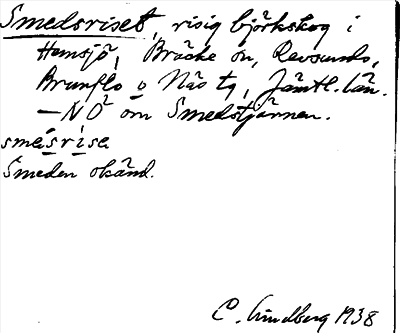 Smedsriset, risig björkskog i
Hemsjö, Bräcke sn, Revsunds,
Brunflo o Näs tg, Jämtl. län.
– NO² om Smedstjärnen.
smésrìse
Smeden okänd.
C. Lindberg 1938